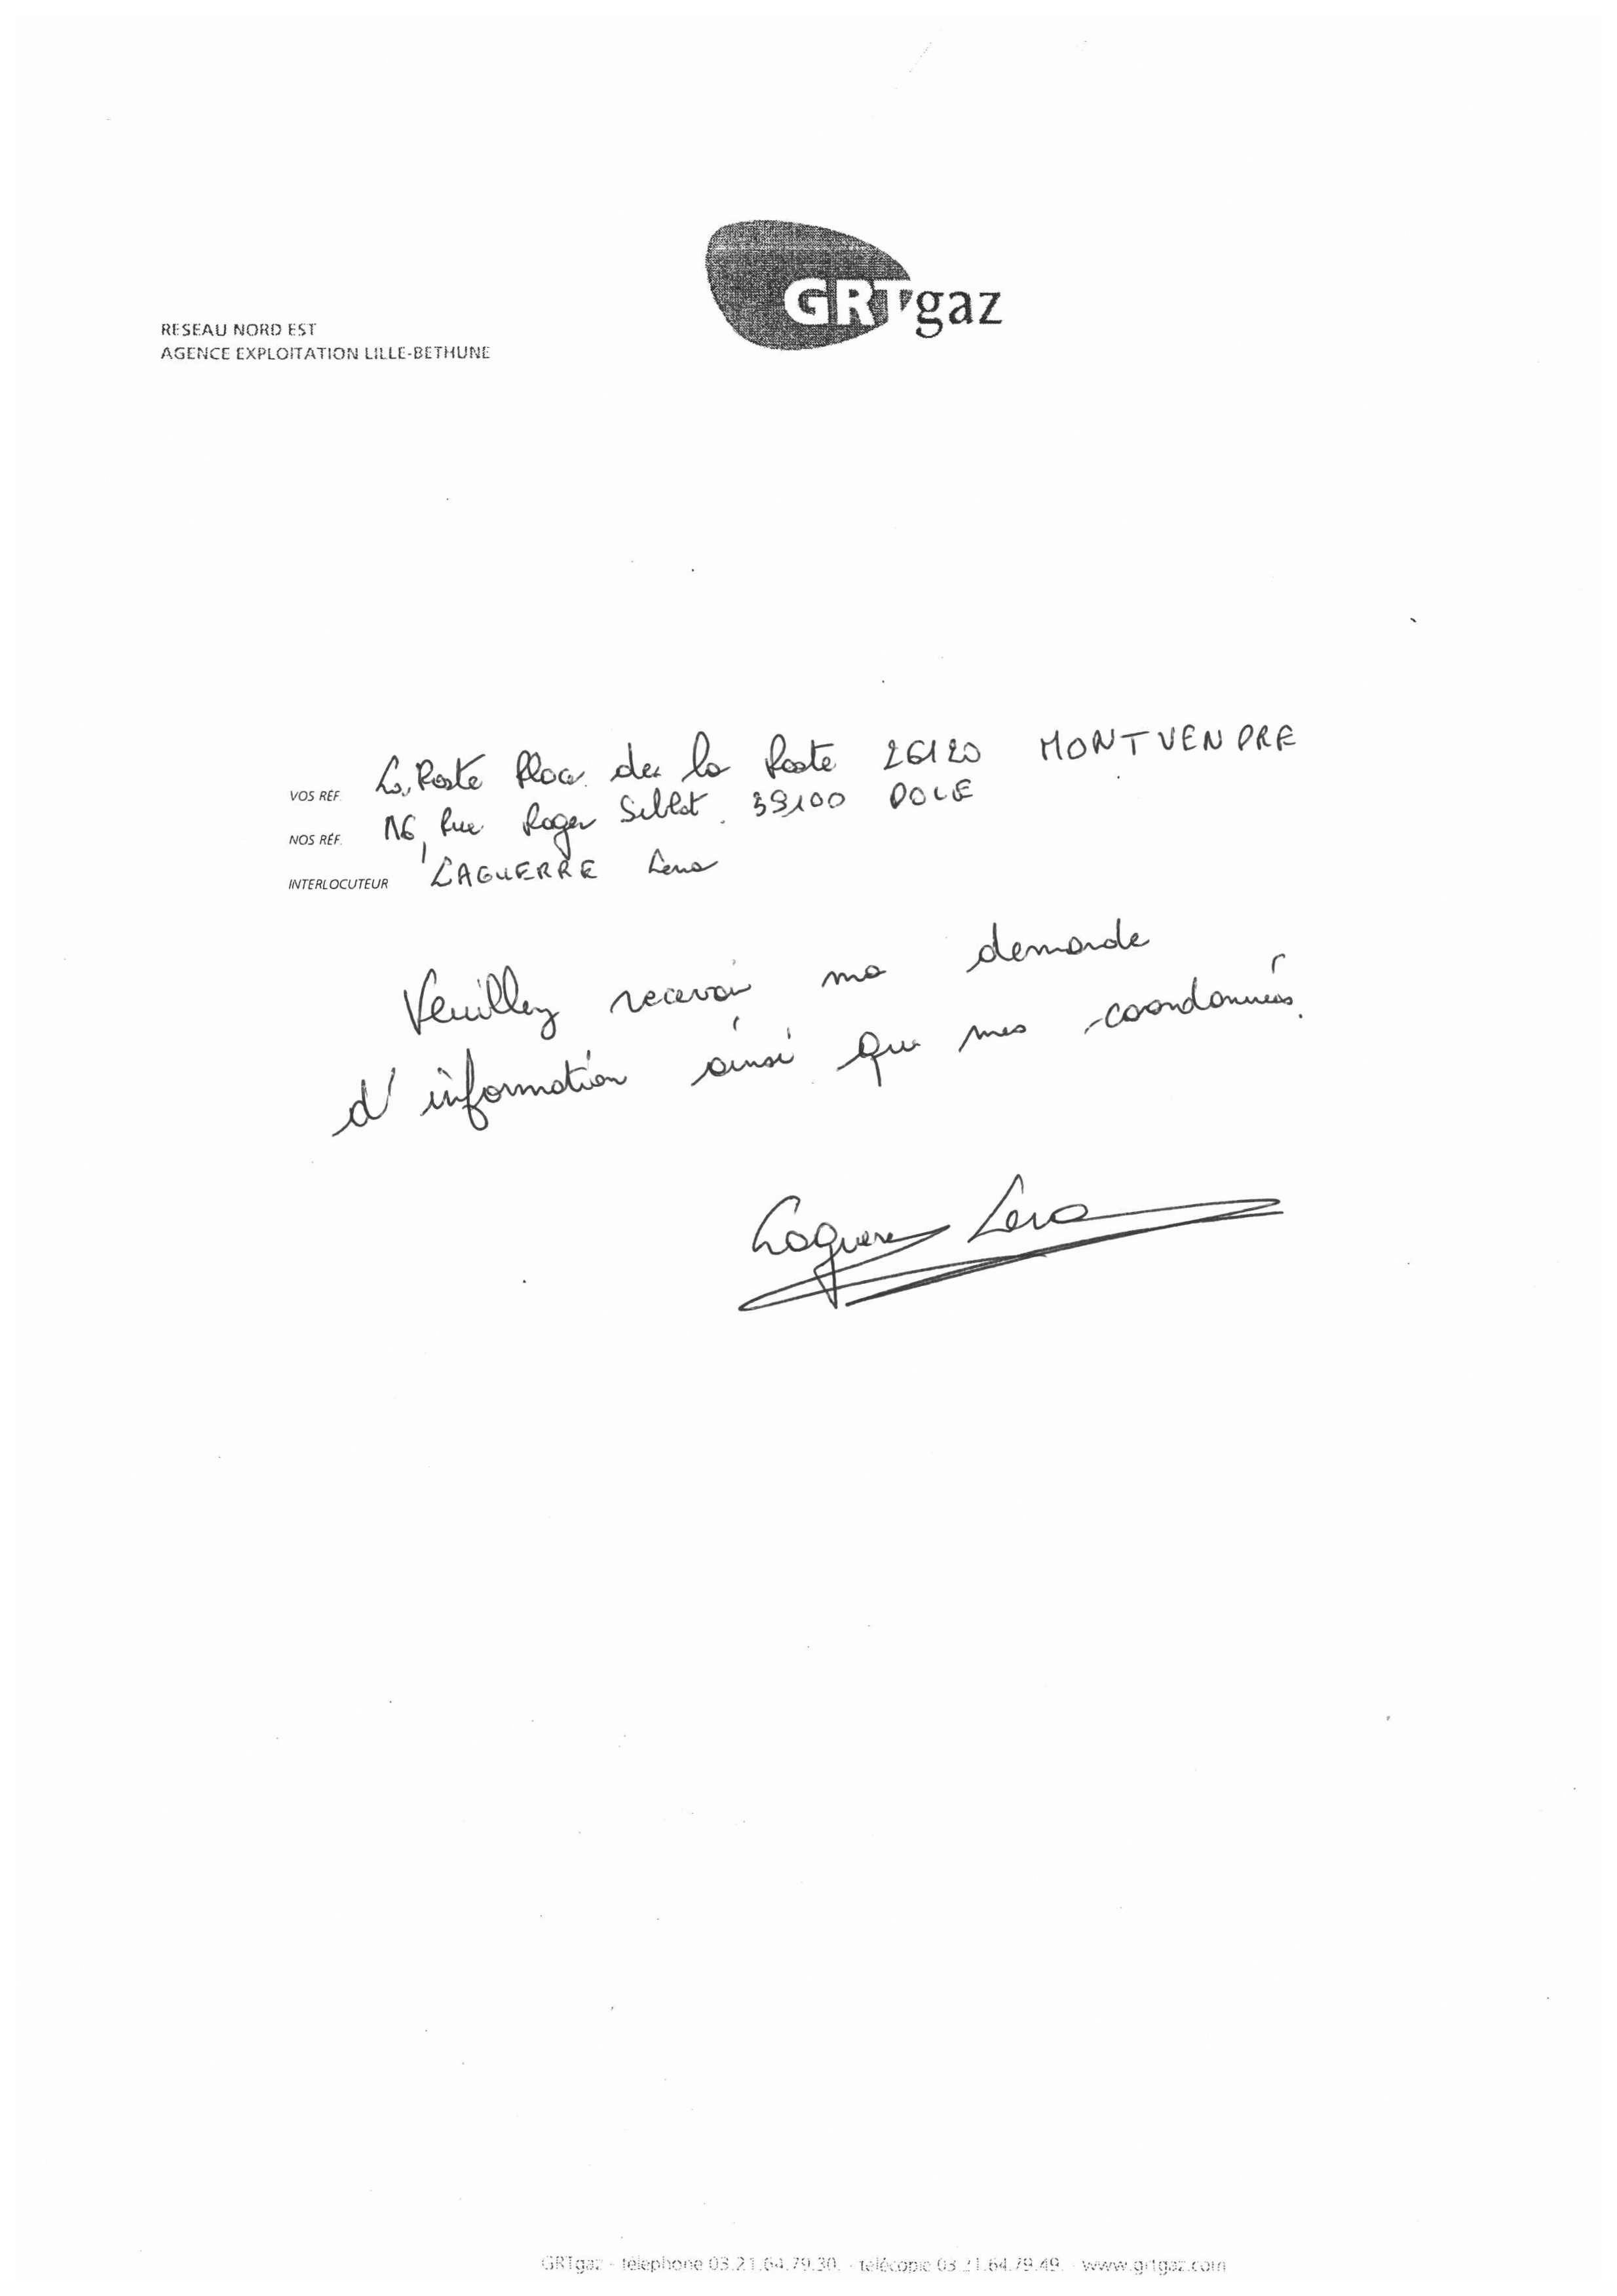 GRTgaz
RESEAU NORD EST
AGENCE EXPLOITATION LILLE-BETHUNE
VOS RÉF. La Poste Place de la Poste 26120 MONTVENDRE
NOS RÉF. 16, Rue Roger 39100 DOLE
INTERLOCUTEUR LAGUERRE Lena
Veuillez recevoir ma demande
d'information ainsi que mes coordonnées.
Laguerre Lena
GRTgaz - téléphone 03.21.64.79.30. - télécopie 03.21.64.79.49. - www.grtgaz.com